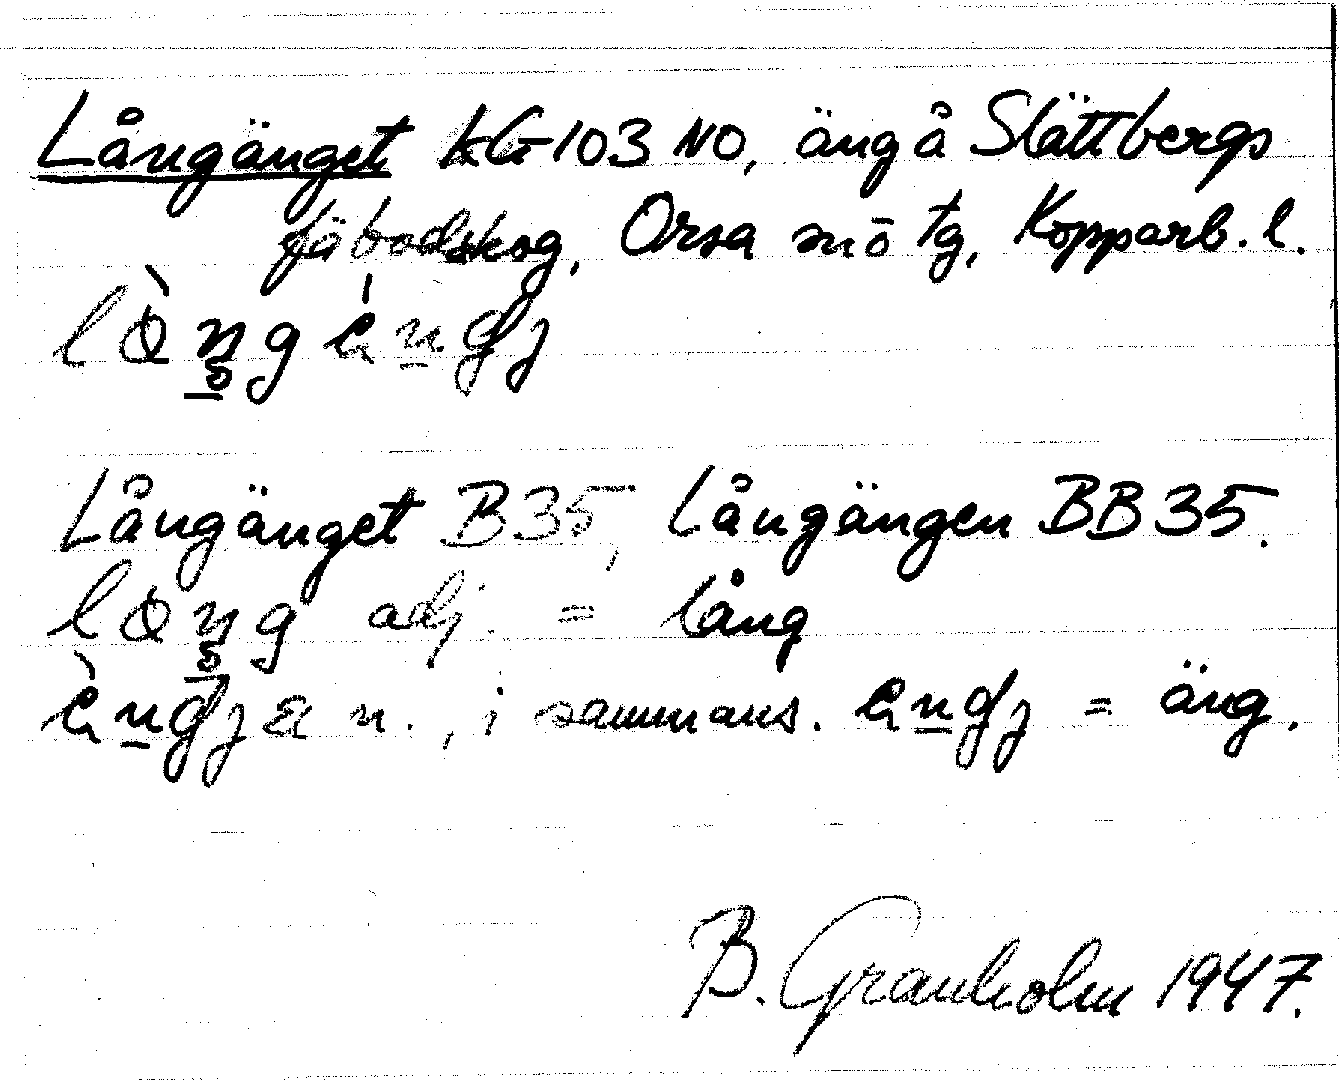 Långänget kG 103 NO, äng å Slättbergs
fäbodskog, Orsa sn ō tg, Kopparb. l.
Långänget B35, Långängen BB35.
adj. = lång
n., i sammans. = äng.
B. Granholm 1947.